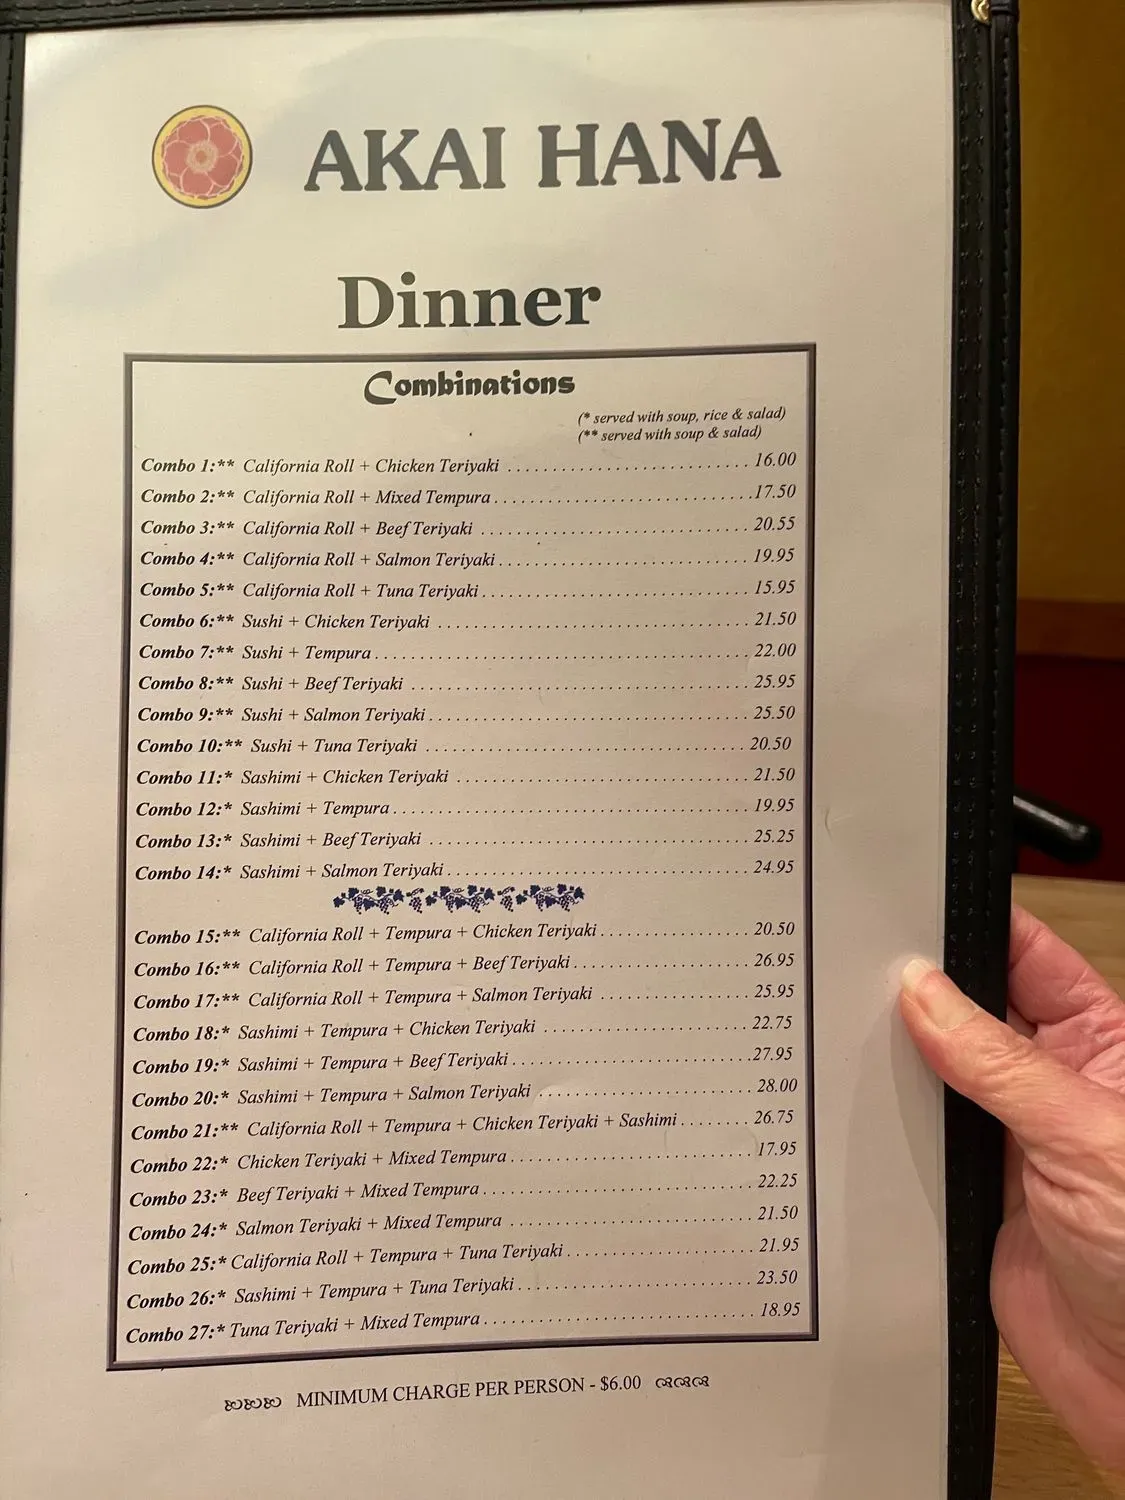 AKAI HANA
Dinner
Combinations
(* served with soup, rice & salad)
(** served with soup & salad)
Combo 1:** California Roll + Chicken Teriyaki . . . . . . . . . . . . . . . . . . . . . . . . . . 16.00
Combo 2:** California Roll + Mixed Tempura . . . . . . . . . . . . . . . . . . . . . . . . . . 17.50
Combo 3:** California Roll + Beef Teriyaki . . . . . . . . . . . . . . . . . . . . . . . . . . 20.55
Combo 4:** California Roll + Salmon Teriyaki . . . . . . . . . . . . . . . . . . . . . . . . . . 19.95
Combo 5:** California Roll + Tuna Teriyaki . . . . . . . . . . . . . . . . . . . . . . . . . . 15.95
Combo 6:** Sushi + Chicken Teriyaki . . . . . . . . . . . . . . . . . . . . . . . . . . 21.50
Combo 7:** Sushi + Tempura . . . . . . . . . . . . . . . . . . . . . . . . . . 22.00
Combo 8:** Sushi + Beef Teriyaki . . . . . . . . . . . . . . . . . . . . . . . . . . 25.95
Combo 9:** Sushi + Salmon Teriyaki . . . . . . . . . . . . . . . . . . . . . . . . . . 25.50
Combo 10:** Sushi + Tuna Teriyaki . . . . . . . . . . . . . . . . . . . . . . . . . . 20.50
Combo 11:* Sashimi + Chicken Teriyaki . . . . . . . . . . . . . . . . . . . . . . . . . . 21.50
Combo 12:* Sashimi + Tempura . . . . . . . . . . . . . . . . . . . . . . . . . . 19.95
Combo 13:* Sashimi + Beef Teriyaki . . . . . . . . . . . . . . . . . . . . . . . . . . 25.25
Combo 14:* Sashimi + Salmon Teriyaki . . . . . . . . . . . . . . . . . . . . . . . . . . 24.95
Combo 15:** California Roll + Tempura + Chicken Teriyaki . . . . . . . . . . . . . . . . 20.50
Combo 16:** California Roll + Tempura + Beef Teriyaki . . . . . . . . . . . . . . . . . . 26.95
Combo 17:** California Roll + Tempura + Salmon Teriyaki . . . . . . . . . . . . . . . . 25.95
Combo 18:* Sashimi + Tempura + Chicken Teriyaki . . . . . . . . . . . . . . . . . . . . 22.75
Combo 19:* Sashimi + Tempura + Beef Teriyaki . . . . . . . . . . . . . . . . . . . . . . 27.95
Combo 20:* Sashimi + Tempura + Salmon Teriyaki . . . . . . . . . . . . . . . . . . . . 28.00
Combo 21:** California Roll + Tempura + Chicken Teriyaki + Sashimi . . . . . . . . 26.75
Combo 22:* Chicken Teriyaki + Mixed Tempura . . . . . . . . . . . . . . . . . . . . . . 17.95
Combo 23:* Beef Teriyaki + Mixed Tempura . . . . . . . . . . . . . . . . . . . . . . . . 22.25
Combo 24:* Salmon Teriyaki + Mixed Tempura . . . . . . . . . . . . . . . . . . . . . . 21.50
Combo 25:* California Roll + Tempura + Tuna Teriyaki . . . . . . . . . . . . . . . . . 21.95
Combo 26:* Sashimi + Tempura + Tuna Teriyaki . . . . . . . . . . . . . . . . . . . . . 23.50
Combo 27:* Tuna Teriyaki + Mixed Tempura . . . . . . . . . . . . . . . . . . . . . . . . 18.95
MINIMUM CHARGE PER PERSON - $6.00